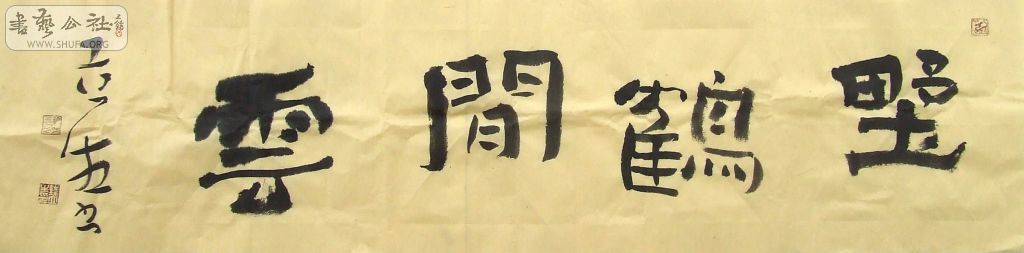 書藝公社
WWW.SHUFA.ORG
野鶴間雲